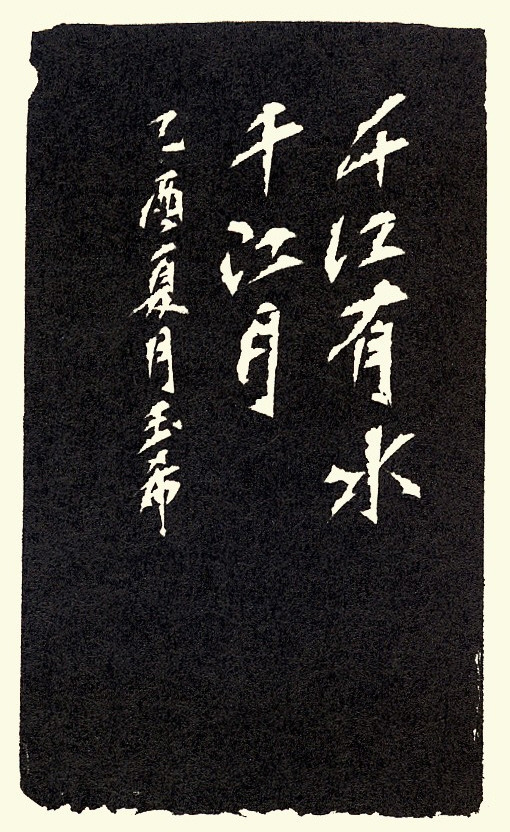 千江有水
千江月
乙酉夏月玉希